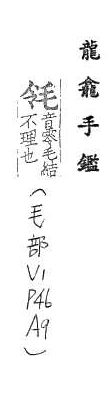 龍龕手鑑
㲆
音零毛結
不理也
(毛部V1P46A9)